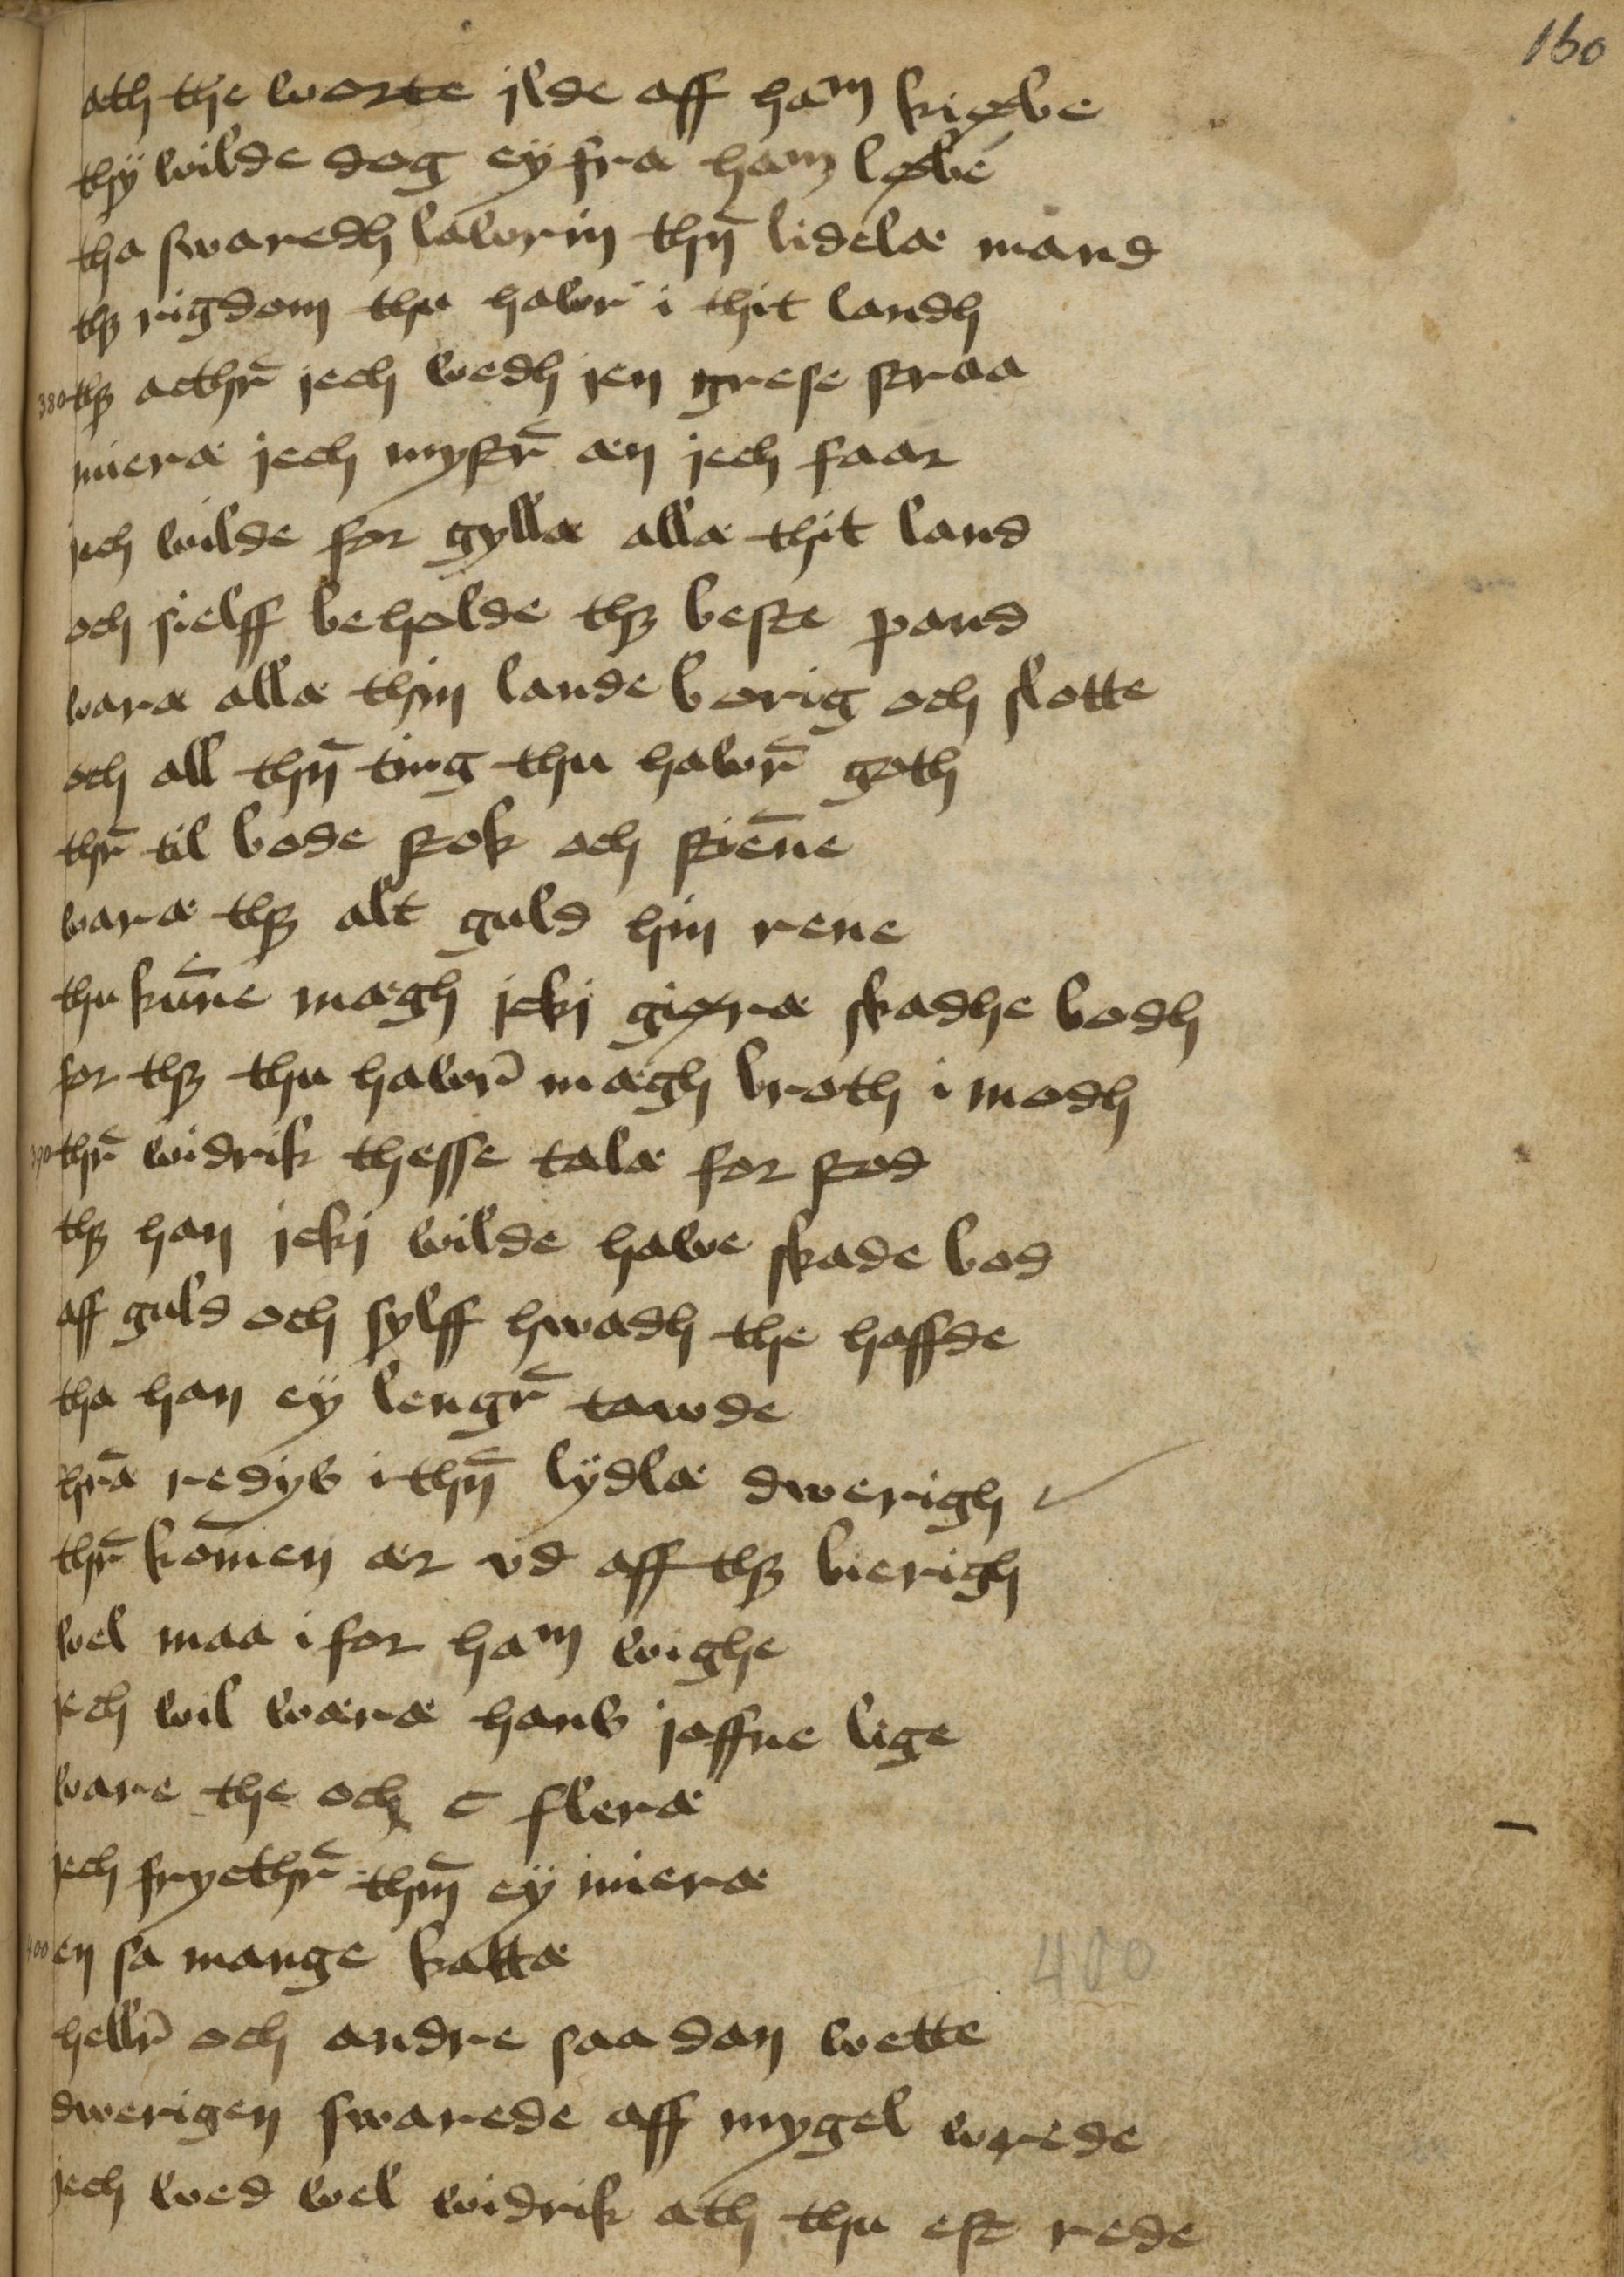 160
ath the worte jlde aff ham kiøbe
thÿ wilde dog eÿ fra ham løbe
tha swaredh lawrin thn̄ lidelæ mand
thꝫ rigdom thu hawr i thit landh
380 thꝫ acthr̄ jech wedh jen grese straa
mieræ jech mystr̄ æn jech faar
jech wilde for gyllæ allæ thit land
och sielff beholde thꝫ beste pand
waræ allæ thin lande borig och slotte
och all thn̄ ting thu hawr̄ goth
thr̄ til bode stok och stien̄e
waræ thꝫ alt guld hin rene
thu kun̄e mægh jcki giøræ skadhe bodh
for thꝫ thu hawr̄ mægh broth i modh
390 thr̄ widrik thesse talæ for stod
thꝫ han jcki wilde hawe skade bod
aff guld och sylff hwadh the haffde
tha han eÿ lengr̄ tawde
hr̄æ rediis i thn̄ lÿdlæ dwerigh
thr̄ kom̄en ær vd aff thꝫ bierigh
wel maa i for ham wighe
jech wil wæræ hans jeffne lige
ware the och c fleræ
jech frycthr̄ thm̄ eÿ mieræ
400 en sa mange kattæ 400
hellr̄ och andre saa dan wette
dwerigen swarede aff mygel wrede
jech wed wel widrik ath thu est rede